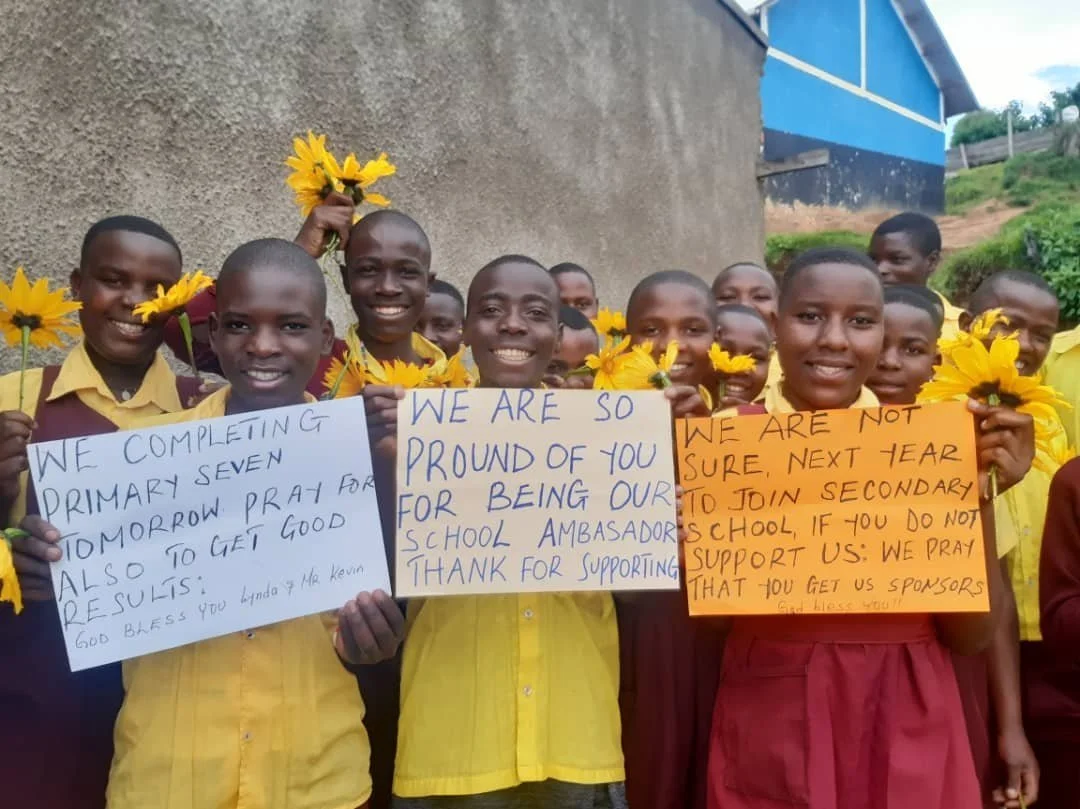 WE COMPLETING
PRIMARY SEVEN
TOMORROW PRAY FOR
ALSO TO GET GOOD
RESULTS:
GOD BLESS YOU Lynda & Mr. Kevin
WE ARE SO
PROUND OF YOU
FOR BEING OUR
SCHOOL AMBASADOR
THANK FOR SUPPORTING
WE ARE NOT
SURE, NEXT YEAR
TO JOIN SECONDARY
SCHOOL, IF YOU DO NOT
SUPPORT US: WE PRAY
THAT YOU GET US SPONSORS
God bless you!!